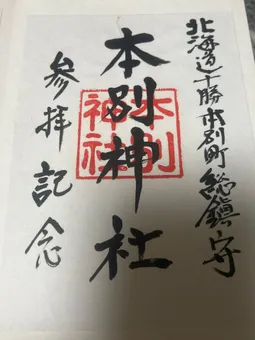 北海道十勝本別町総鎮守
本別神社
参拝記念
本別
神社